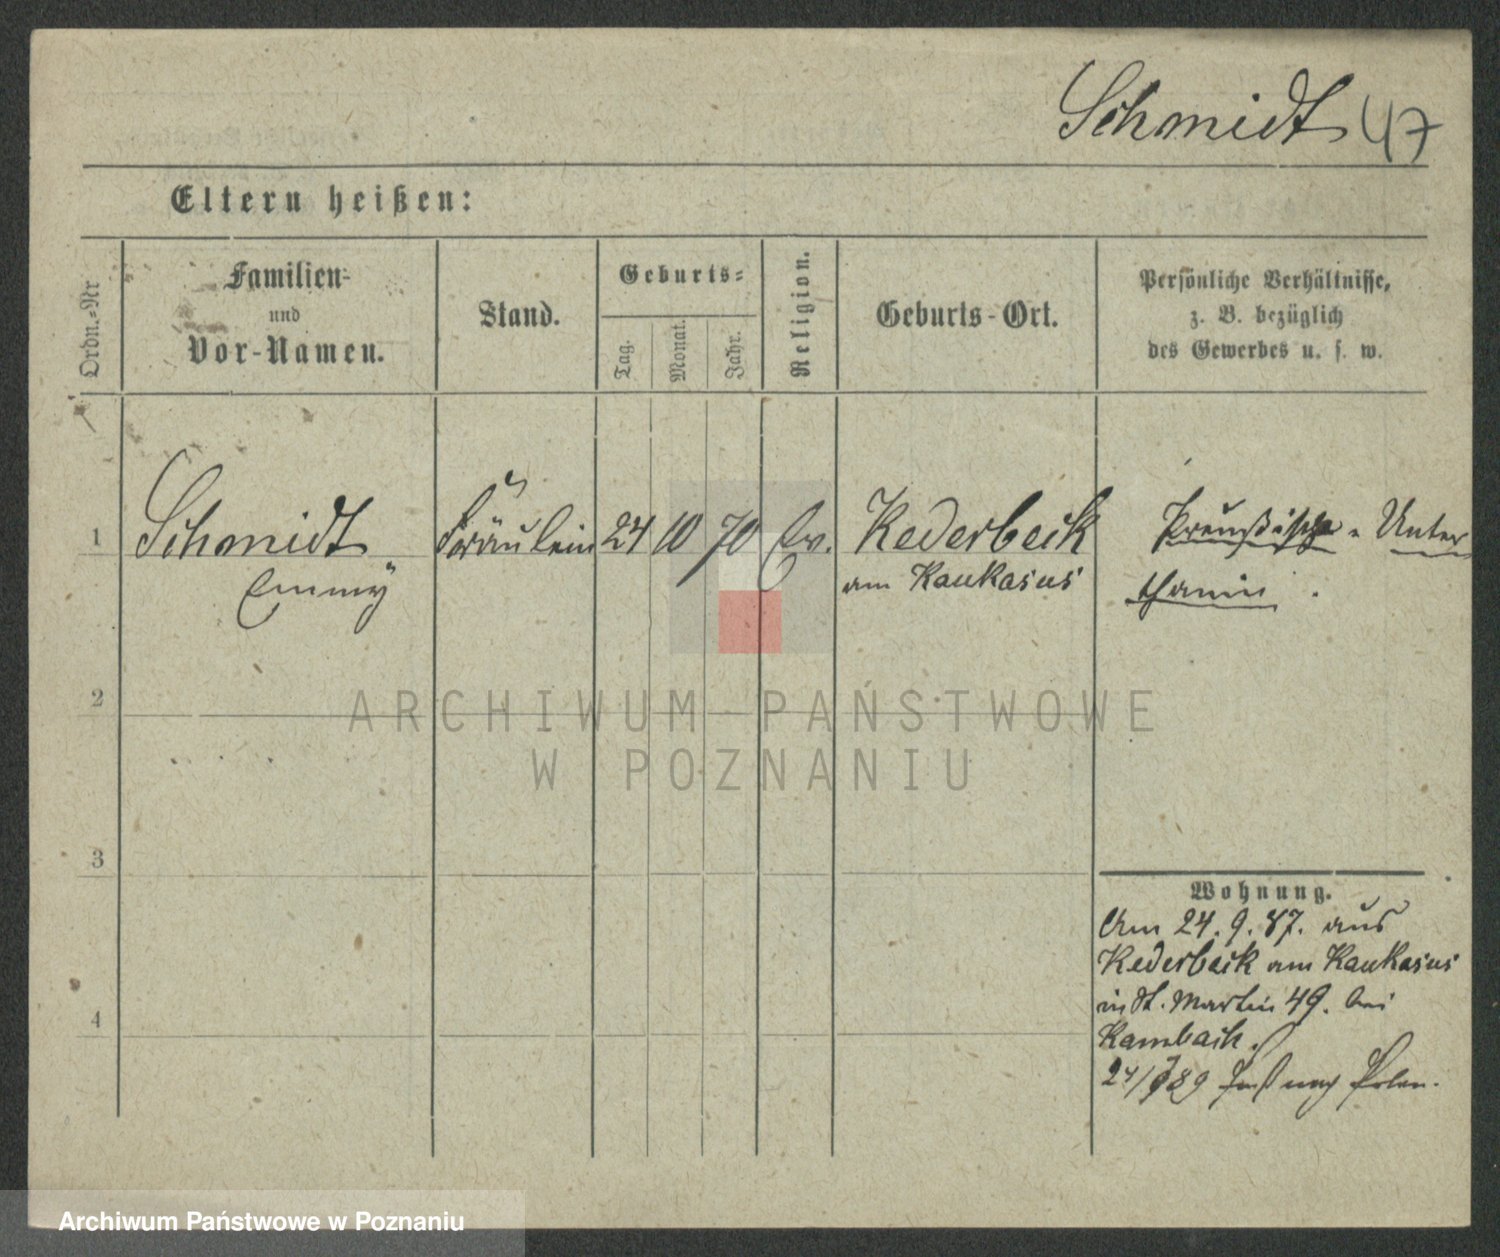 Schmidt 47
Eltern heißen:
Ordn.=Nr
Familien=
und
Vor-Namen.
Stand.
Geburts=
Tag.
Monat.
Jahr.
Religion.
Geburts-Ort.
Persönliche Verhältnisse,
z. B. bezüglich
des Gewerbes u. s. w.
1 Schmidt Fräulein 24 10 70 Ev. Kederbeck Preußische Unter
Emmy am Kaukasus thanin.
2
3
4
Wohnung.
Am 24. 9. 87. aus
Kederbeck am Kaukasus
in St. Martin 49. bei
Kambach.
24/ 89 Paß nach Polen.
ARCHIWUM PAŃSTWOWE
W POZNANIU
Archiwum Państwowe w Poznaniu